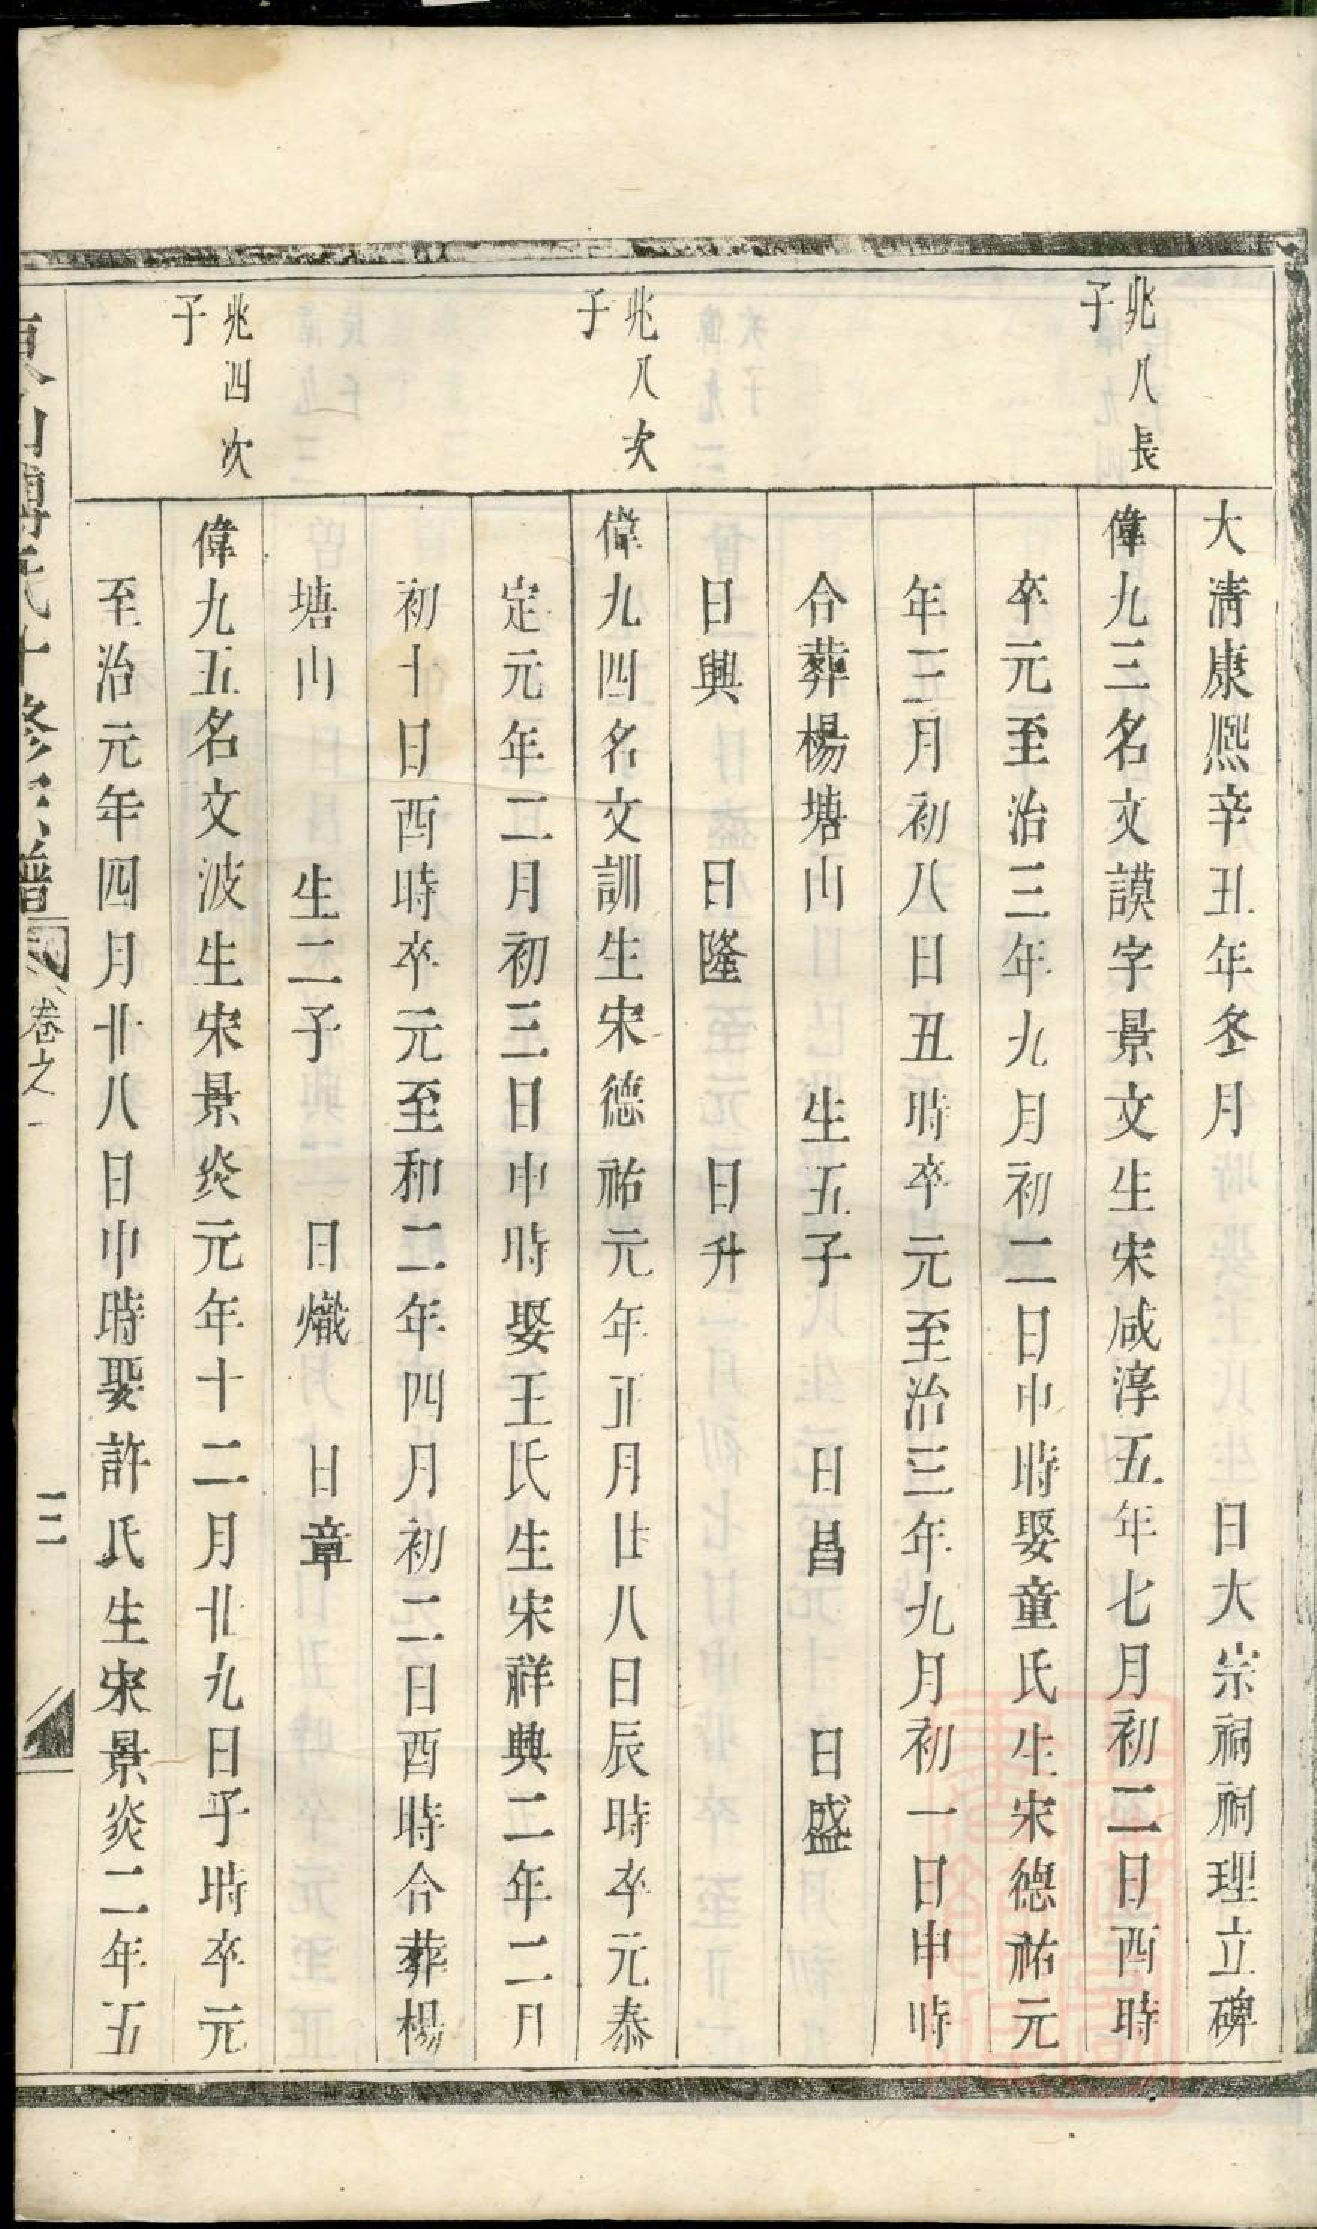 大清康熙辛丑年冬月 日大宗祠祠理立碑
兆八長
子
偉九三名文謨字景文生宋咸淳五年七月初二日酉時
卒元至治三年九月初二日申時娶童氏生宋德祐元
年三月初八日丑時卒元至治三年九月初一日申時
合葬楊塘山 生五子 日昌 日盛
日興 日隆 日升
兆八次
子
偉九四名文訓生宋德祐元年正月廿八日辰時卒元泰
定元年二月初三日申時娶王氏生宋祥興二年二月
初十日酉時卒元至和二年四月初二日酉時合葬楊
塘山 生二子 日熾 日章
兆四次
子
偉九五名文波生宋景炎元年十二月廿九日子時卒元
至治元年四月廿八日申時娶許氏生宋景炎二年五
氏十修宗譜 卷之一
三